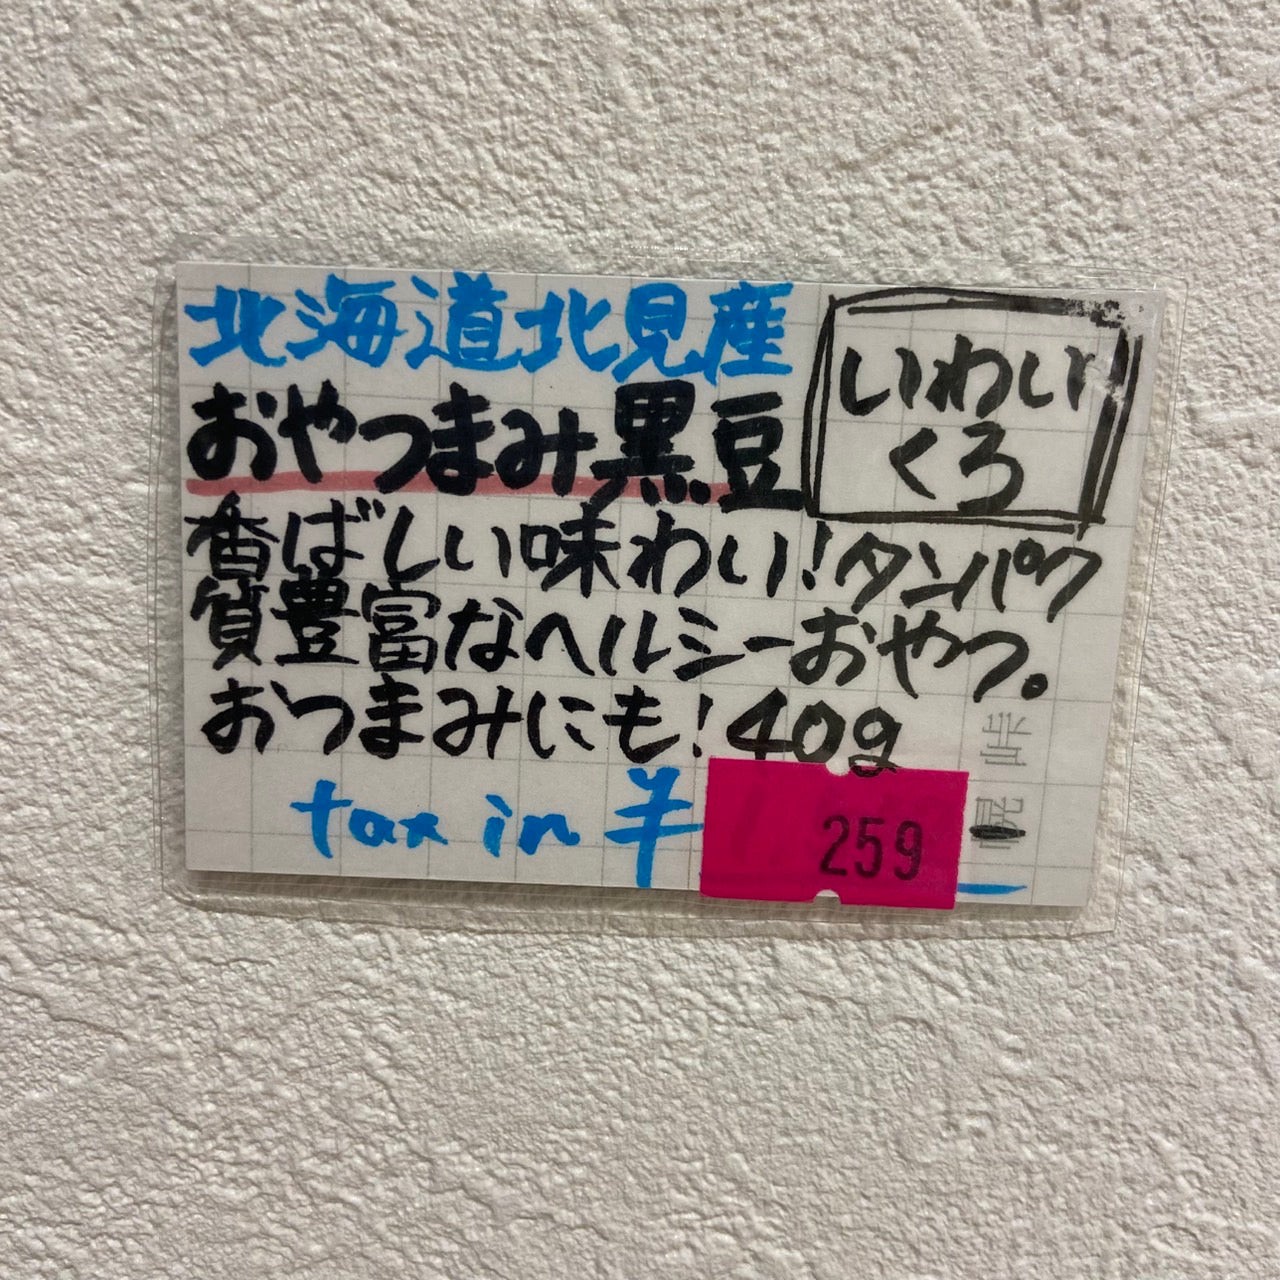 北海道北見産
おやつまみ黒豆
いわい
くろ
香ばしい味わい!タンパク
質豊富なヘルシーおやつ。
おつまみにも!40g
tax in ¥ 259